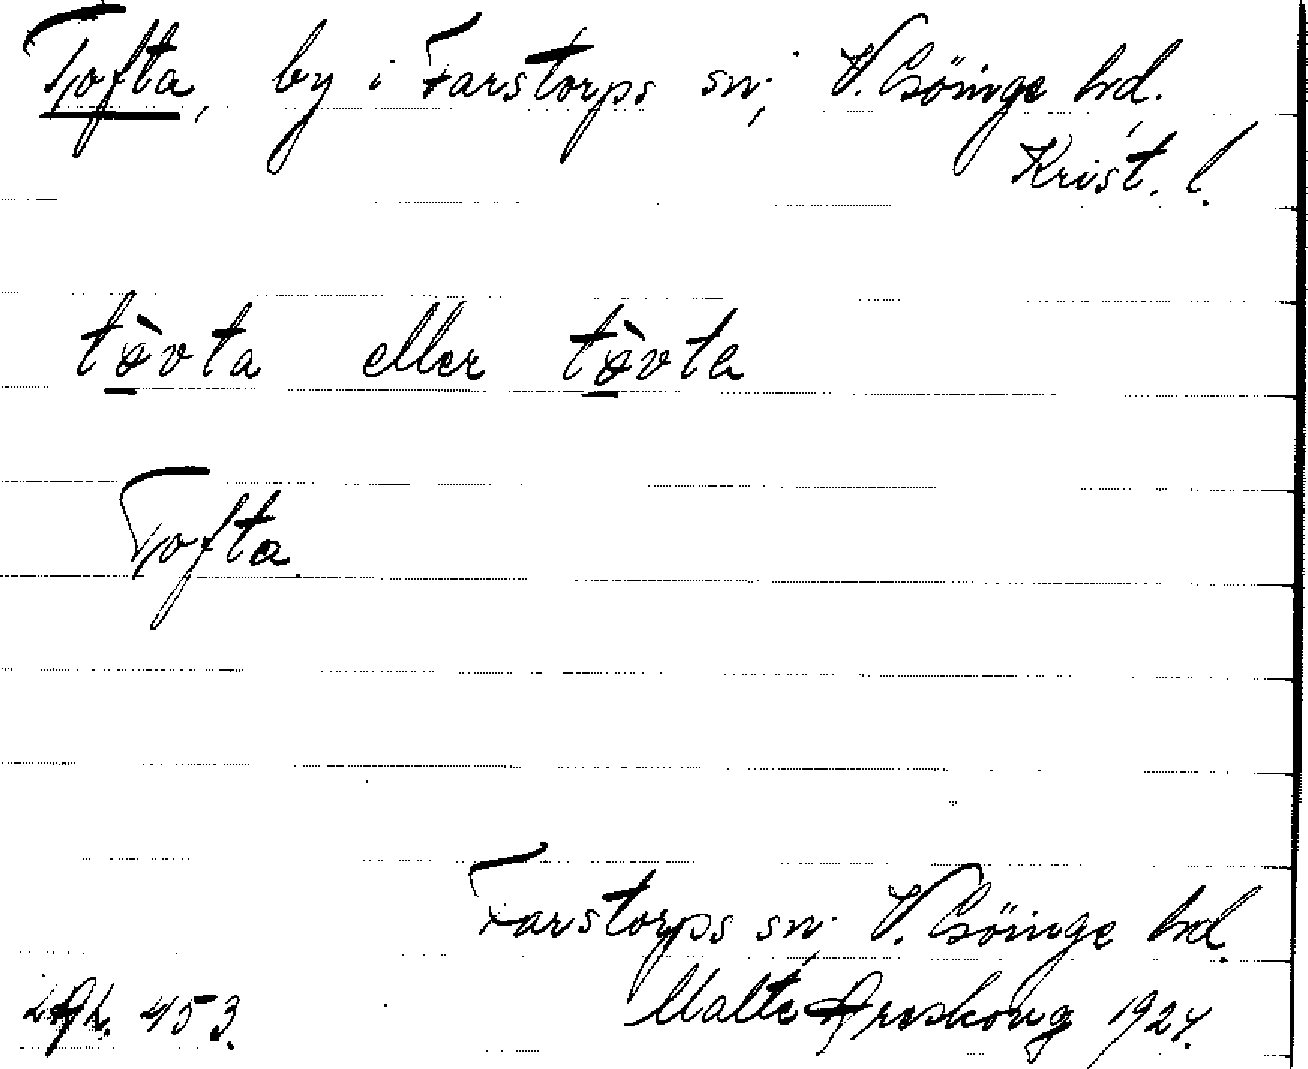 Tofta, by i Farstorps sn, V. Göinge hd.
Krist. l.
tòvta eller tòvta
Tofta
Farstorps sn, V. Göinge hd.
453. Malte Areskoug 1924.